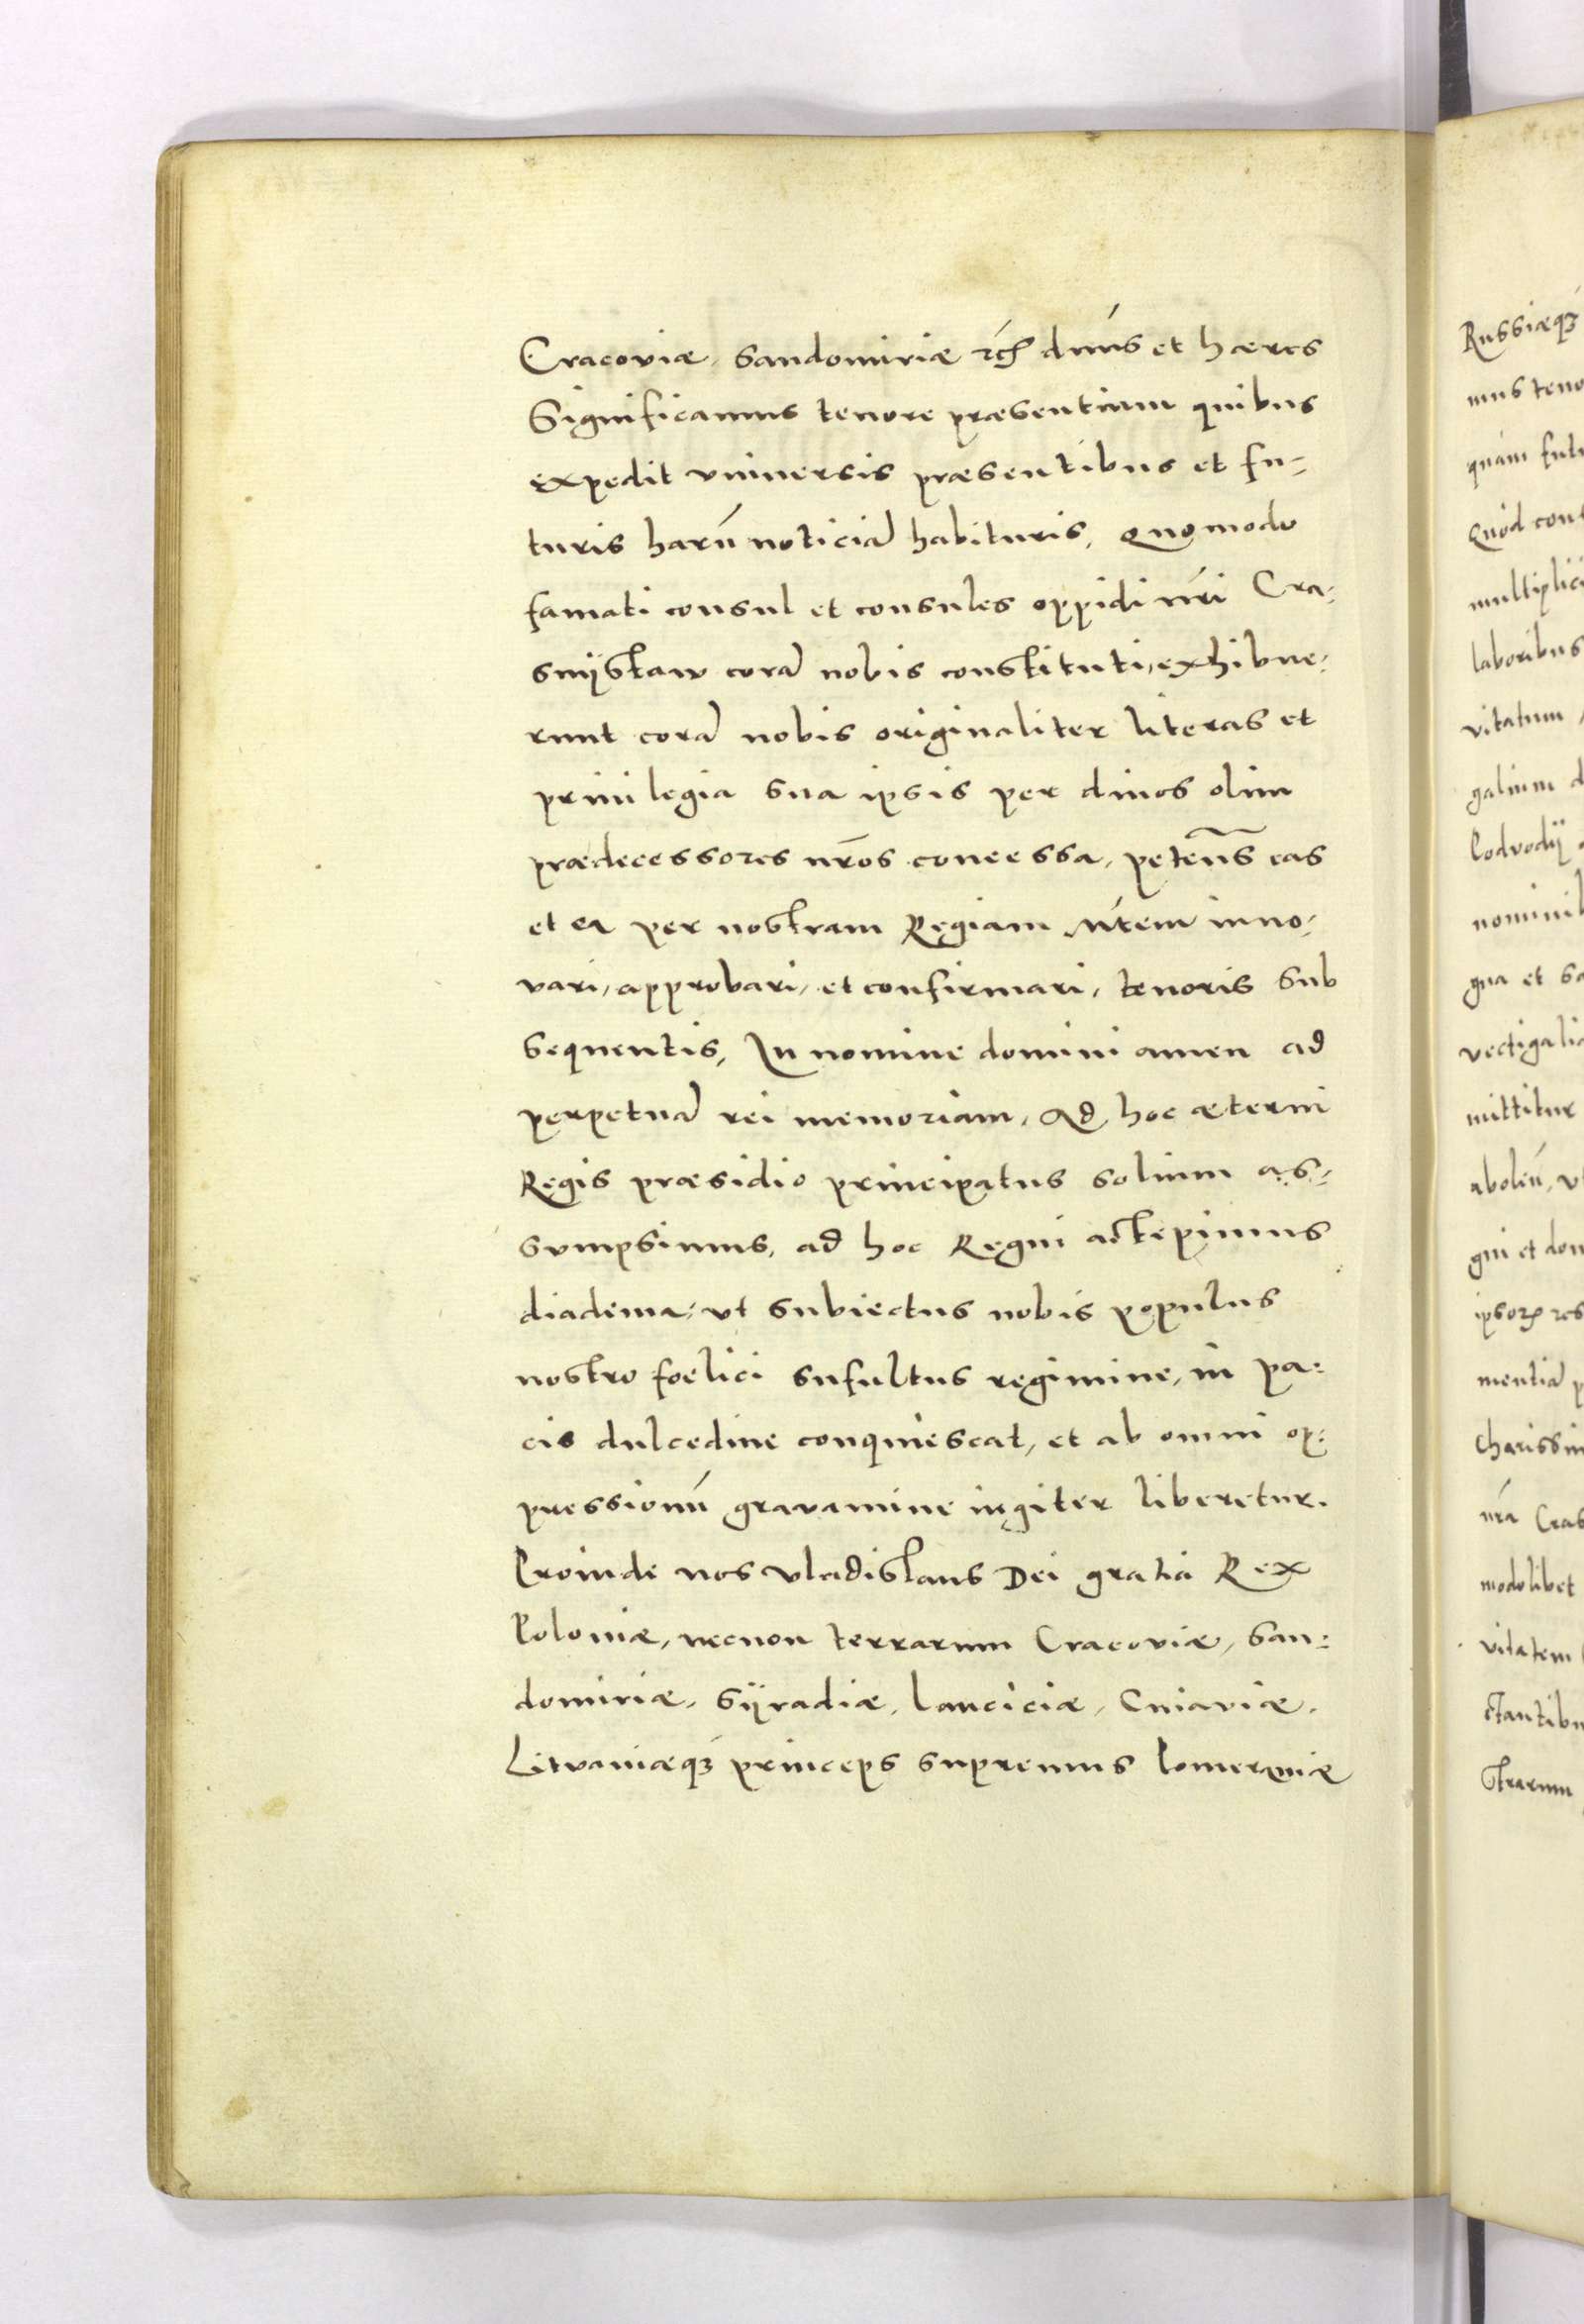 Cracoviæ, Sandomiriæ etc̃ dnús et hæres
Significamus tenore præsentium quibus
expedit vniuersis præsentibus et fu-
turis harũ noticiã habituris, Quomodo
famati consul et consules oppidi nr̃i Cra-
snÿstaw corã nobis constituti, exhibue-
runt corã nobis originaliter literas et
priuilegia sua ipsis per diuos olim
prædecessores nr̃os concessa, peteñs eas
et ea per nostram Regiam Mtem inno-
vari, approbari, et confirmari, tenoris sub
sequentis, In nomine domini amen ad
perpetuã rei memoriam, Ad hoc æterni
Regis præsidio principatus solium as-
sumpsimus, ad hoc Regni accepimus
diadema, vt subiectus nobis populus
nostro foelici sufultus regimine, in pa-
cis dulcedine conquiescat, et ab omni op-
pressionũ grauamine iugiter liberetur.
Proinde nos Vladislaus Dei gratia Rex
Poloniæ, necnon terrarum Cracoviæ, San-
domiriæ, Sÿradiæ, Lanciciæ, Cuiaviæ,
Litvaniæq3 princeps supremus Pomeraniæ
Russiæq3
mus teno
quàm futu
Quòd con
multiplici
laboribus
vitatum
galium d
Podvodÿ
nominib
gna et sa
vectigalia
mittitur
gni et dom
ipsorꝝ res
mentiã p
charissim
nr̃a Cras
modolibet
vitatem
ctantibu
strarum